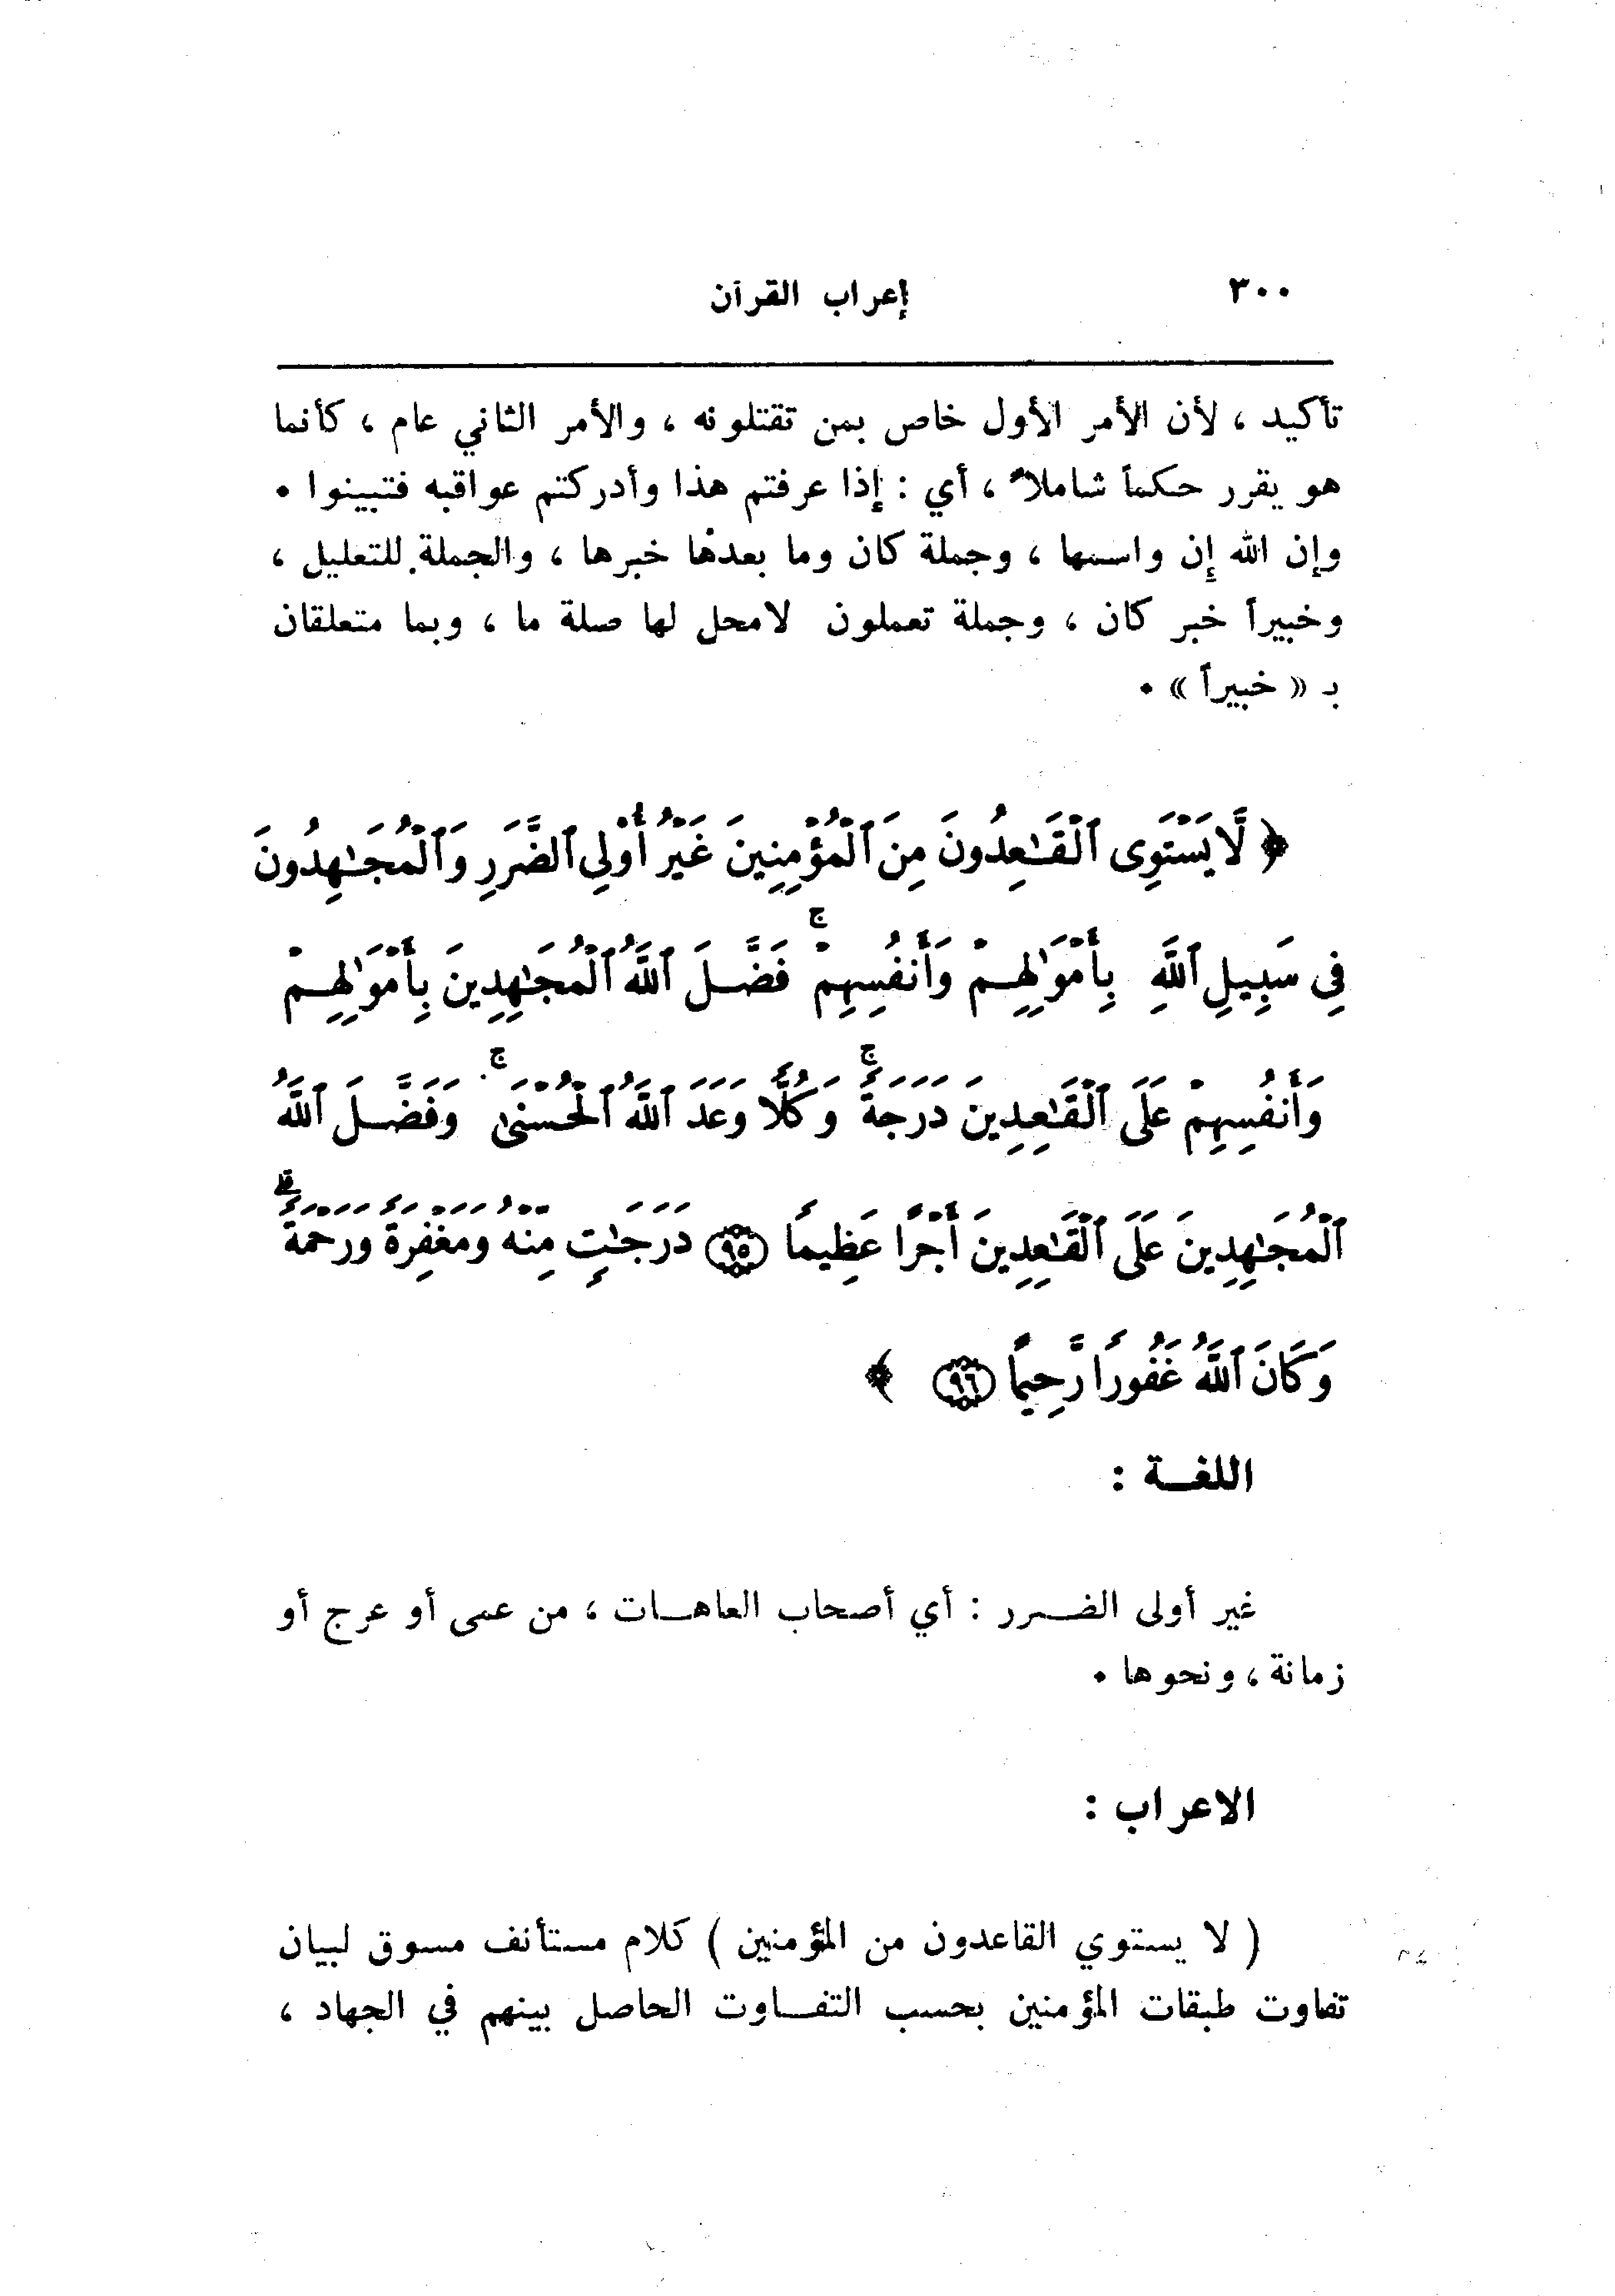 ٣٠٠ إعراب القرآن
تأكيد ، لأن الأمر الأول خاص بمن تقتلونه ، والأمر الثاني عام ، كأنما
هو يقرر حكماً شاملاً ، أي : إذا عرفتم هذا وأدركتم عواقبه فتبينوا .
وإن الله إن واسمها ، وجملة كان وما بعدها خبرها ، والجملة للتعليل ،
وخبيراً خبر كان ، وجملة تعملون لامحل لها صلة ما ، وبما متعلقان
بـ « خبيراً » .
﴿ لَّا يَسْتَوِى ٱلْقَـٰعِدُونَ مِنَ ٱلْمُؤْمِنِينَ غَيْرُ أُو۟لِى ٱلضَّرَرِ وَٱلْمُجَـٰهِدُونَ
فِى سَبِيلِ ٱللَّهِ بِأَمْوَٰلِهِمْ وَأَنفُسِهِمْ ۚ فَضَّلَ ٱللَّهُ ٱلْمُجَـٰهِدِينَ بِأَمْوَٰلِهِمْ
وَأَنفُسِهِمْ عَلَى ٱلْقَـٰعِدِينَ دَرَجَةً ۚ وَكُلًّا وَعَدَ ٱللَّهُ ٱلْحُسْنَىٰ ۚ وَفَضَّلَ ٱللَّهُ
ٱلْمُجَـٰهِدِينَ عَلَى ٱلْقَـٰعِدِينَ أَجْرًا عَظِيمًا ٩٥ دَرَجَـٰتٍ مِّنْهُ وَمَغْفِرَةً وَرَحْمَةً ۗ
وَكَانَ ٱللَّهُ غَفُورًا رَّحِيمًا ٩٦ ﴾
اللغــة :
غير أولى الضــرر : أي أصحاب العاهــات ، من عمى أو عرج أو
زمانة ، ونحوها .
الاعراب :
( لا يستوي القاعدون من المؤمنين ) كلام مستأنف مسوق لبيان
تفاوت طبقات المؤمنين بحسب التفــاوت الحاصل بينهم في الجهاد ،